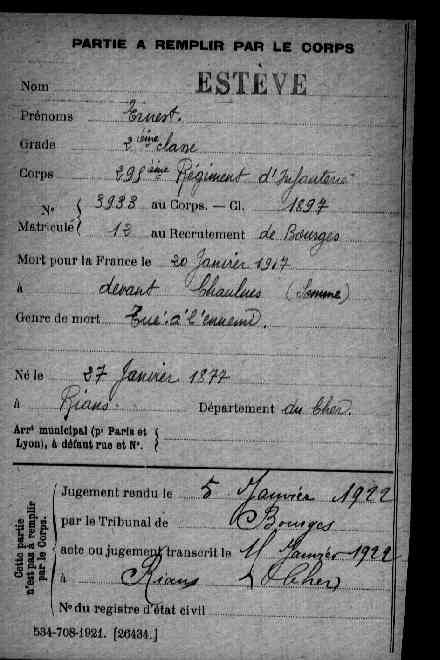 PARTIE A REMPLIR PAR LE CORPS
Nom ESTÈVE
Prénoms Ernest.
Grade 2ième classe
Corps Régiment d'Infanterie
No 3933 au Corps. — Cl. 1897
Matricule 13 au Recrutement de Bourges
Mort pour la France le 20 Janvier 1917
à devant Chaulnes (Somme)
Genre de mort Tué à l'ennemi.
Né le 27 Janvier 1877
à Rians. Département du Cher.
Arrt municipal (pr Paris et
Lyon), à défaut rue et N°.
Cette partie
n'est pas à remplir
par le Corps.
Jugement rendu le 5 Janvier 1922
par le Tribunal de Bourges
acte ou jugement transcrit le 11 Janvier 1922
à Rians (Cher)
N° du registre d'état civil
534-708-1921. [26434.]